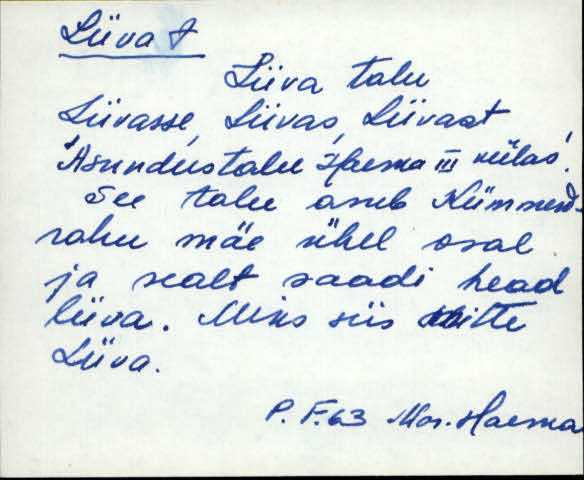 Liiva t
Liiva talu
Liivasse, Liivas, Liivast
'Asundustalu Haema III külas'.
See talu asub Kümmend-
rahu mäe ühel osal
ja sealt saadi head
liiva. Miks siis mitte
Liiva.
P. F. 63 Mar. Haema